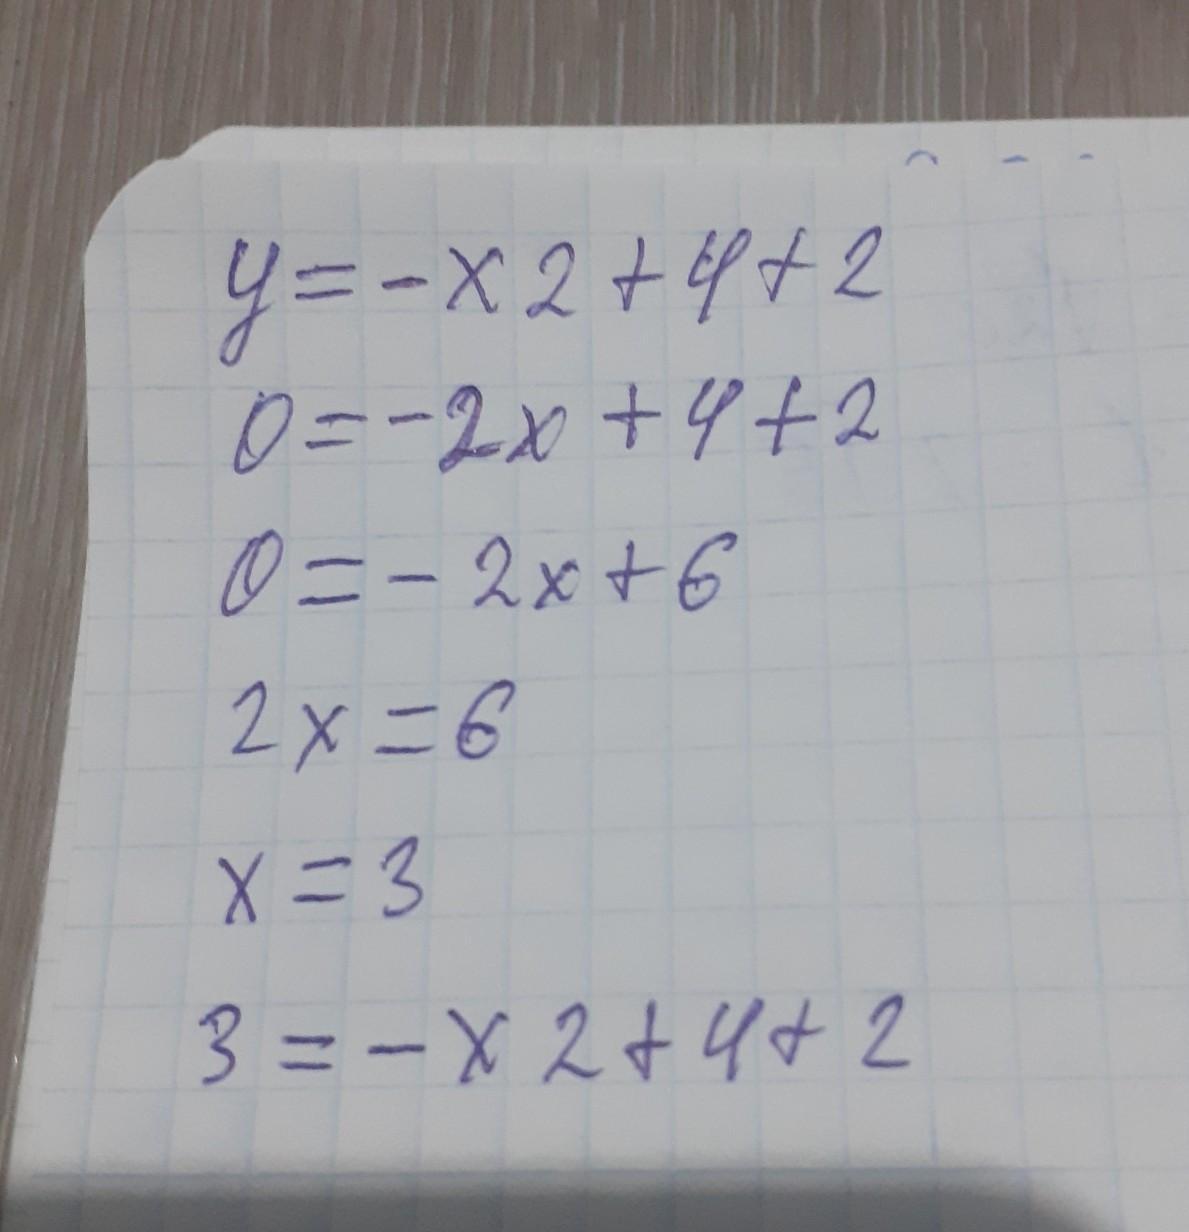 y = - x 2 + 4 + 2
0 = - 2x + 4 + 2
0 = - 2x + 6
2x = 6
x = 3
3 = - x 2 + 4 + 2